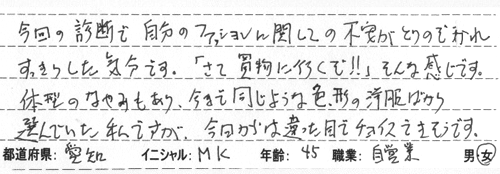 今回の診断で自分のファッションに関しての不安がとりのぞかれ
すっきりした気分です。「さて買物に行くぞ!!」そんな感じです。
体型のなやみもあり、今まで同じような色、形の洋服ばかり
選んでいた私ですが、今回からは違った目でチョイスできそうです。
都道府県: 愛知 イニシャル: MK 年齢: 45 職業: 自営業 男・女